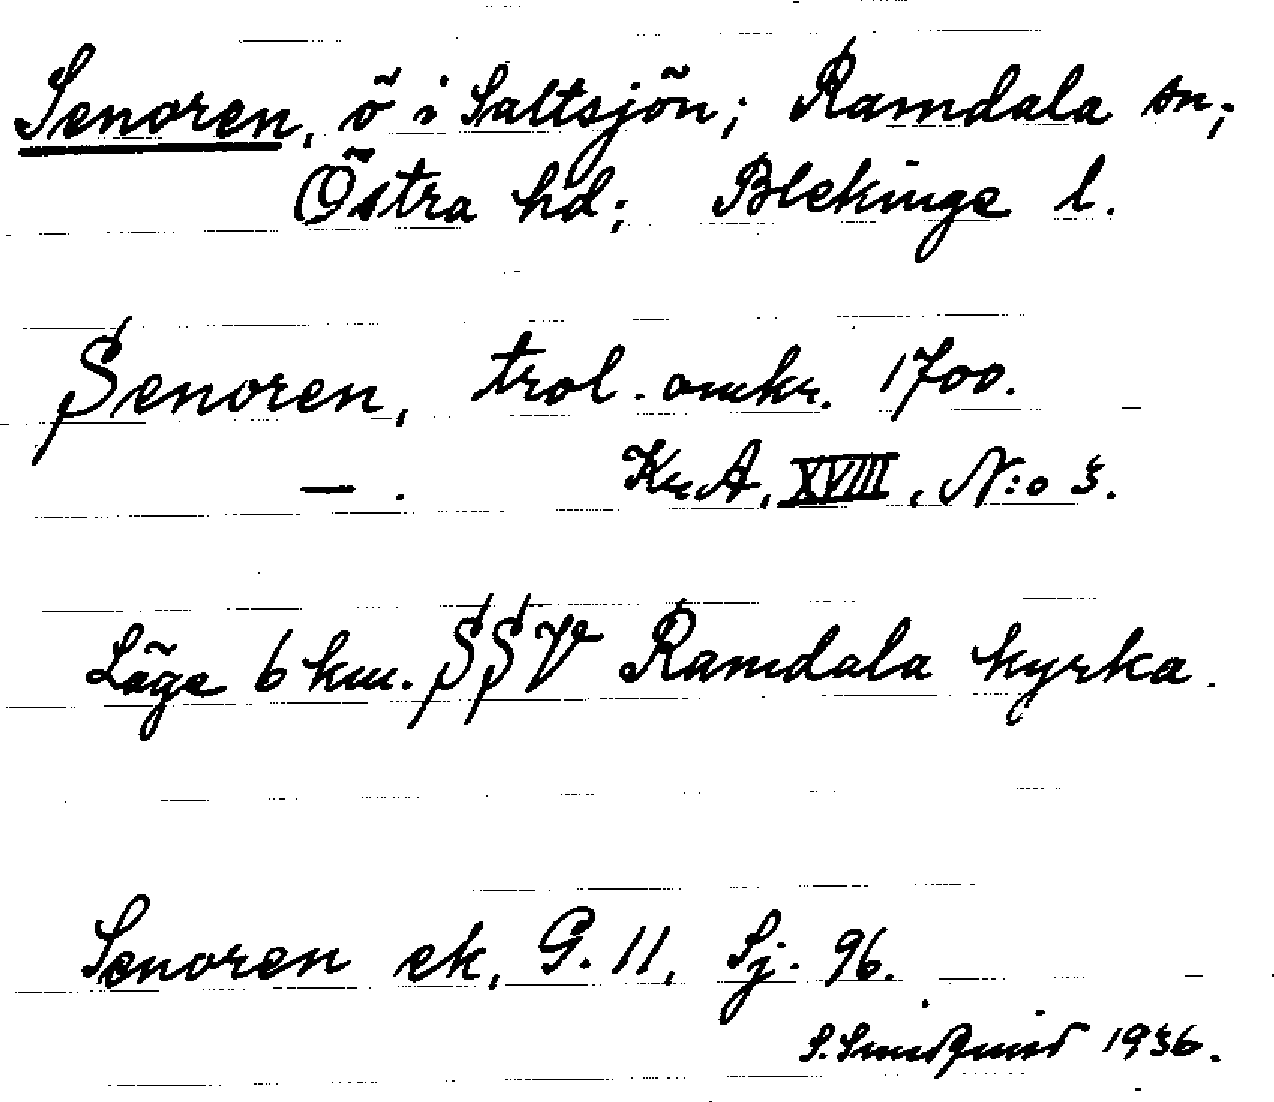 Senoren, ö i Saltsjön; Ramdala sn;
Östra hd; Blekinge l.
Senoren, trol. omkr. 1700.
— . KrA, XVIII, N:o 3.
Läge 6 km. SSV Ramdala kyrka.
Senoren ek, G. 11, Sj. 96.
S. 1936.